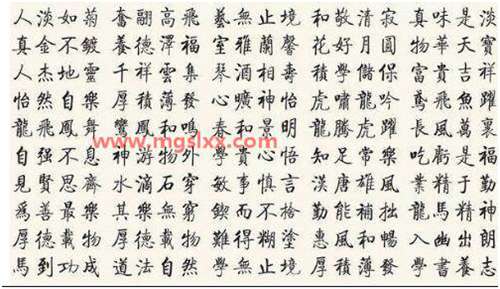 人淡如菊 奮翮高飛 藝無止境 和敬清寂 真味是淡
真金不鍍 養德澤福 室雅蘭馨 花好月圓 物華天寶
人杰地靈 千祥雲集 琴酒相壽 積學儲保 富貴吉祥
怡然自樂 厚積薄發 心曠神怡 虎嘯龍吟 鳶飛魚躍
龍飛鳳舞 鸞鳳和鳴 春和景明 龍騰虎躍 長風萬裏
www.mgslxx.com
自强不息 神游物外 學貴心悟 知足常樂 吃虧是福
見賢思齊 水滴石穿 敏事慎言 漢唐雄風 業精于勤
爲善最樂 其樂無窮 而不 勤能補拙 馬精神
厚德載物 厚德載物 難得糊塗 惠風和暢 入幽出朗
馬到功成 道法自然 學無止境 厚積薄發 學書養志